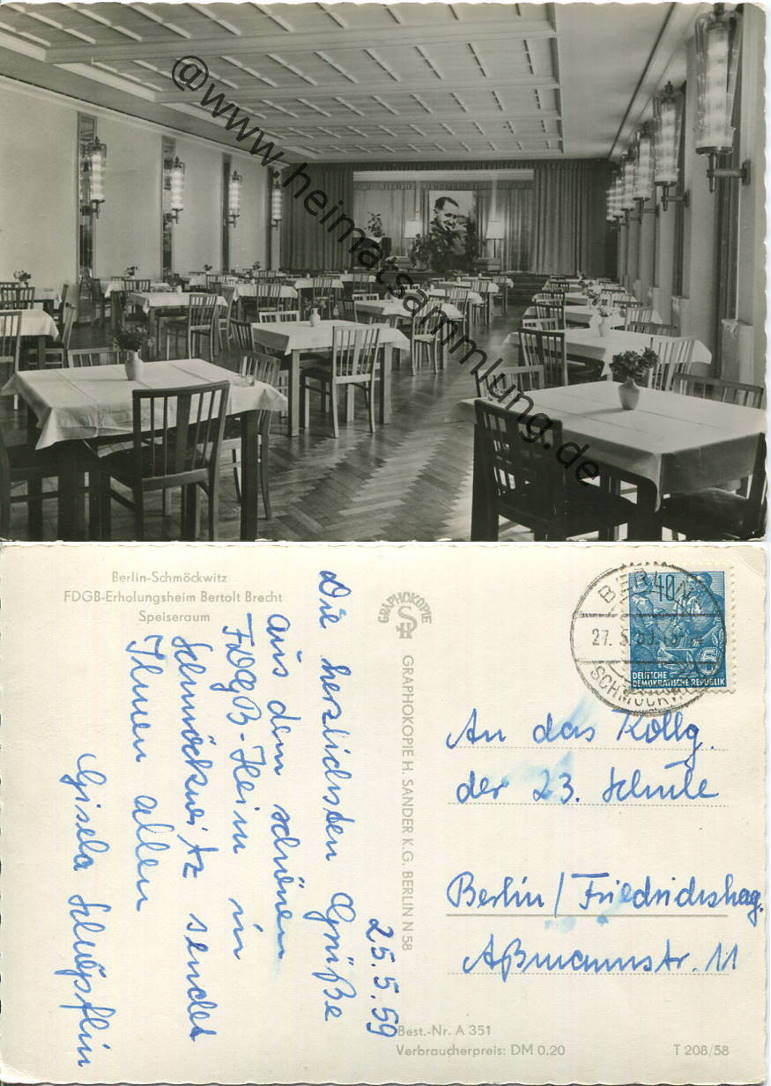 @www.heimatsammlung.de
Berlin-Schmöckwitz
FDGB-Erholungsheim Bertolt Brecht
Speiseraum
Die herzlichsten Grüße
aus dem schönen
FDGB-Heim in
Schmöckwitz sendet
Ihnen allen
Gisela Schöpflin
25.5.59
GRAPHOKOPIE
GRAPHOKOPIE H. SANDER K.G. BERLIN N 58
BERLIN
27. 5. 59
SCHMÖCKWITZ
40
5
DEUTSCHE
DEMOKRATISCHE REPUBLIK
An das Kollg.
der 23. Schule
Berlin/Friedrichshag.
Aßmannstr. 11
Best.-Nr. A 351
Verbraucherpreis: DM 0.20
T 208/58